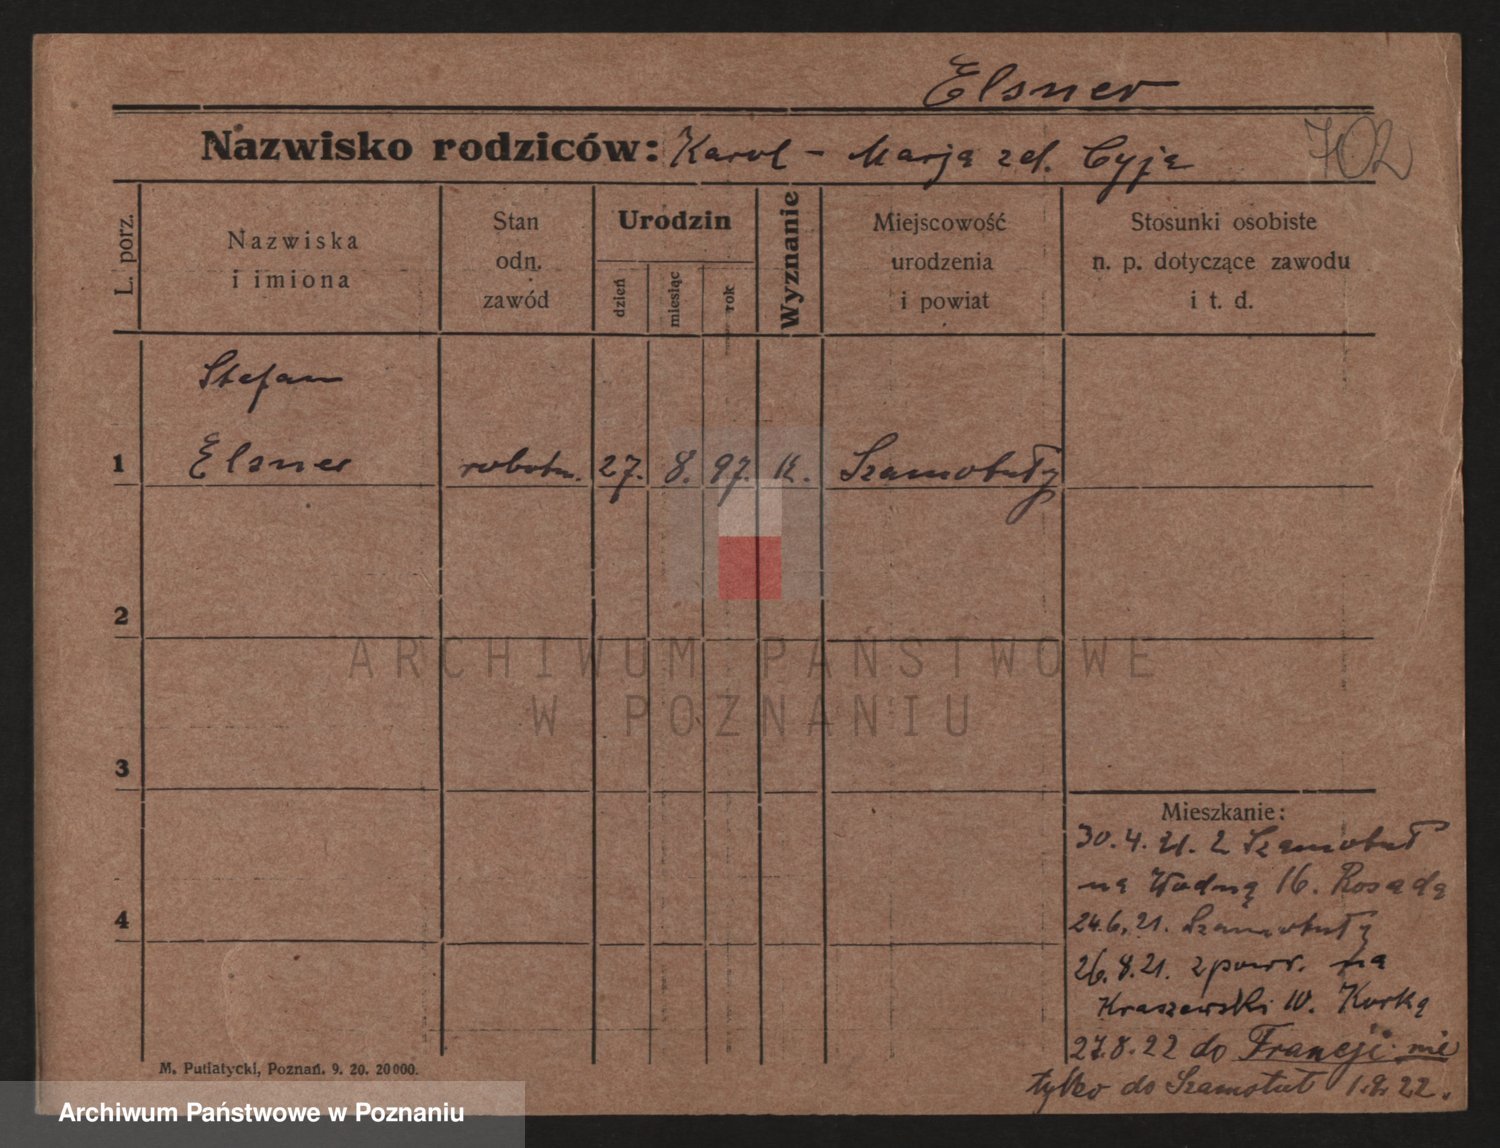 Elsner
Nazwisko rodziców: Karol - Marja zd. Cyja
702
L. porz.
Nazwiska
i imiona
Stan
odn.
zawód
Urodzin
dzień
miesiąc
rok
Wyznanie
Miejscowość
urodzenia
i powiat
Stosunki osobiste
n. p. dotyczące zawodu
i t. d.
Stefan
1 Elsner robotn. 27. 8. 97. K. Szamotuły
2
ARCHIWUM PAŃSTWOWE
W POZNANIU
3
Mieszkanie:
30.4.21. z Szamotuł
na Wodną 16. Rosada
4
24.6.21. Szamotuły
26.8.21. z powr. na
Kraszewski 10. Kurka
27.8.22 do Francji nie
tylko do Szamotuł 1.9.22.
M. Putiatycki, Poznań. 9. 20. 20000.
Archiwum Państwowe w Poznaniu